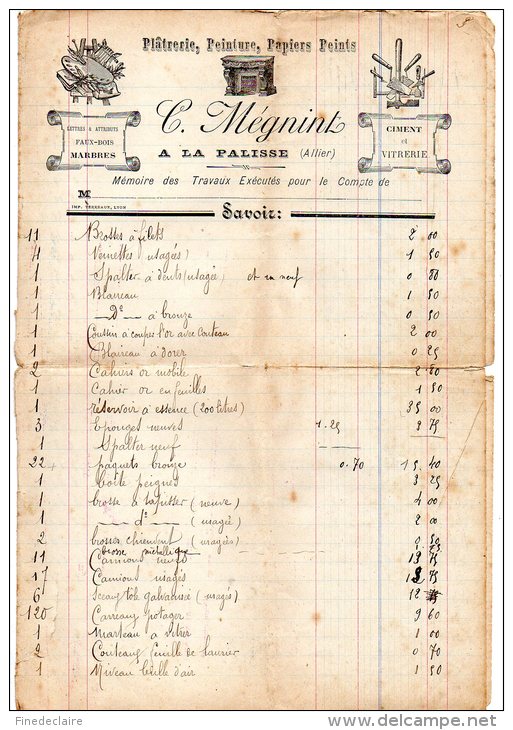 Plâtrerie, Peinture, Papiers Peints
C. Mégnint
A LA PALISSE (Allier)
LETTRES & ATTRIBUTS
FAUX-BOIS
MARBRES
CIMENT
et
VITRERIE
Mémoire des Travaux Exécutés pour le Compte de
M
IMP. TERREAUX, LYON
Savoir:
11 Brosses à filets 2 00
4 Veinettes (usagés) 1 50
1 Spalter à dents (usagée) et un neuf 0 80
1 Blaireau 1 50
1 — Do — à bronze 0 50
1 Coussin à coupes l'or avec couteau 2 00
1 Blaireau à dorer 0 25
2 Cahiers or mobile 2 80
1 Cahier or en feuilles 1 50
1 réservoir à essence (200 litres) 35 00
3 Eponges neuves 1.25 3 75
1 Spalter neuf
22 paquets bronze 0.70 15 40
1 boîte peignes 3 25
1 brosse à tapisser (neuve) 4 00
1 — do — (usagée) 2 00
2 brosses chiendent (usagées) 0 50
1 brosse métallique 1 25
11 Camions neufs 13 75
17 Camions usagés 75
6 Sceaux tôle galvanisée (usagés) 12
120 Carreaux potager 9 60
1 Marteau à vitrer 1 00
2 Couteaux feuille de laurier 0 70
1 Niveau bulle d'air 1 50
Finedeclaire
http://www.delcampe.net